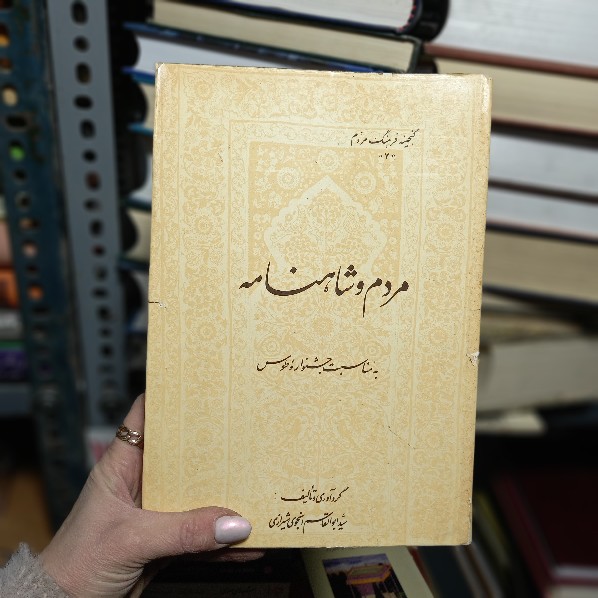 گنجینه فرهنگ مردم
«۲»
مردم و شاهنامه
به مناسبت جشنواره طوس
گردآوری و تألیف:
سید ابوالقاسم انجوی شیرازی